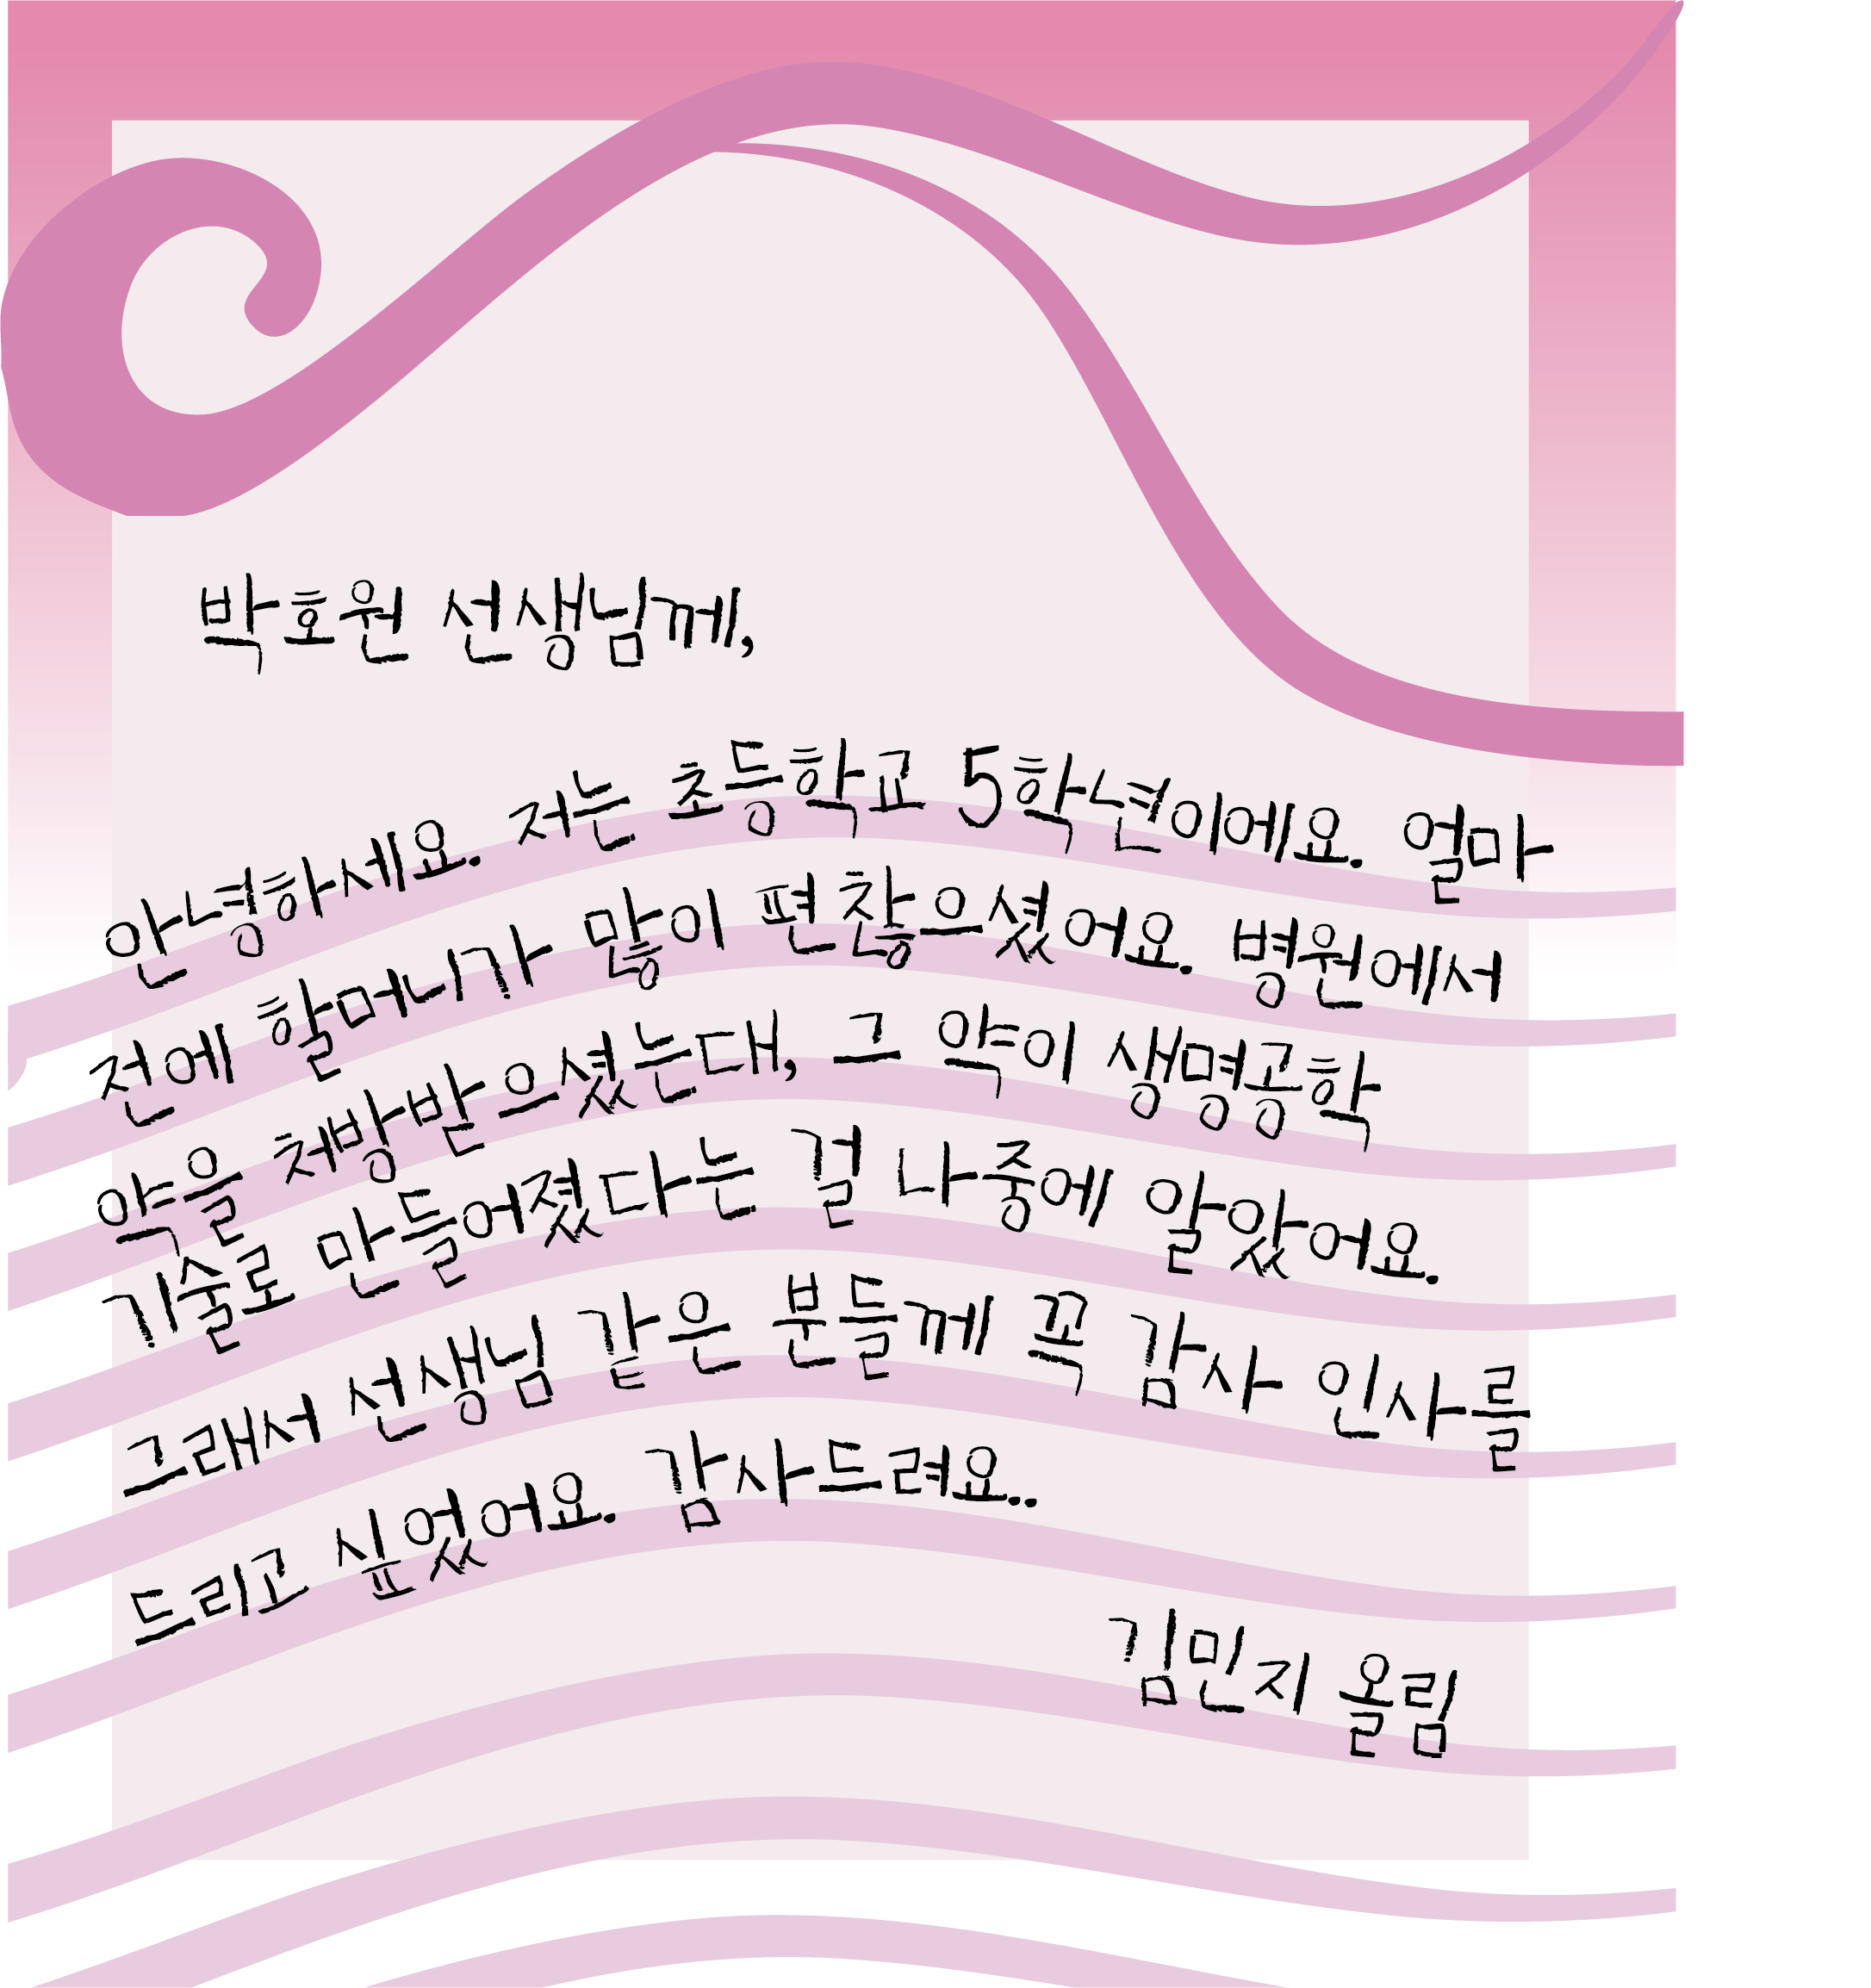 박호원 선생님께,
안녕하세요. 저는 초등학교 5학년이에요. 얼마
전에 할머니가 많이 편찮으셨어요. 병원에서
약을 처방받으셨는대, 그 약이 생명공학
기술로 만들어졌다는 걸 나중에 알았어요.
그래서 선생님 같은 분들께 꼭 감사 인사를
드리고 싶었어요. 감사드려요..
김민지 올림